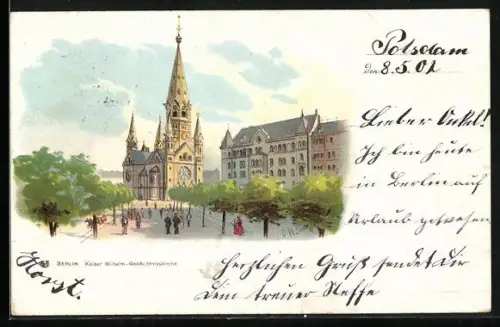 Potsdam
den 8.5.01
Lieber Onkel!
Ich bin heute
in Berlin auf
Urlaub gewesen
BERLIN. Kaiser Wilhelm-Gedächtniskirche
Herzlichen Gruß sendet Dir
Dein treuer Neffe
Horst.